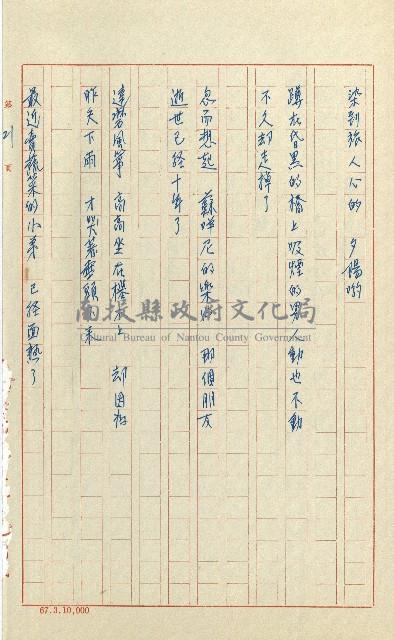 染到旅人心的 夕陽喲
蹲在昏黑的橋上吸煙的男人動也不動
不久却走掉了
忽而想起 蘇 尼的樂 那個朋友
逝世已経十年了
達勞風箏 高高坐在檯上 却因為
昨天下雨 才哭着要 頭 來
最近賣蔬菜的小弟 已経面熟了
第 21 頁
南投縣政府文化局
Cultural Bureau of Nantou County Government
67.3.10,000